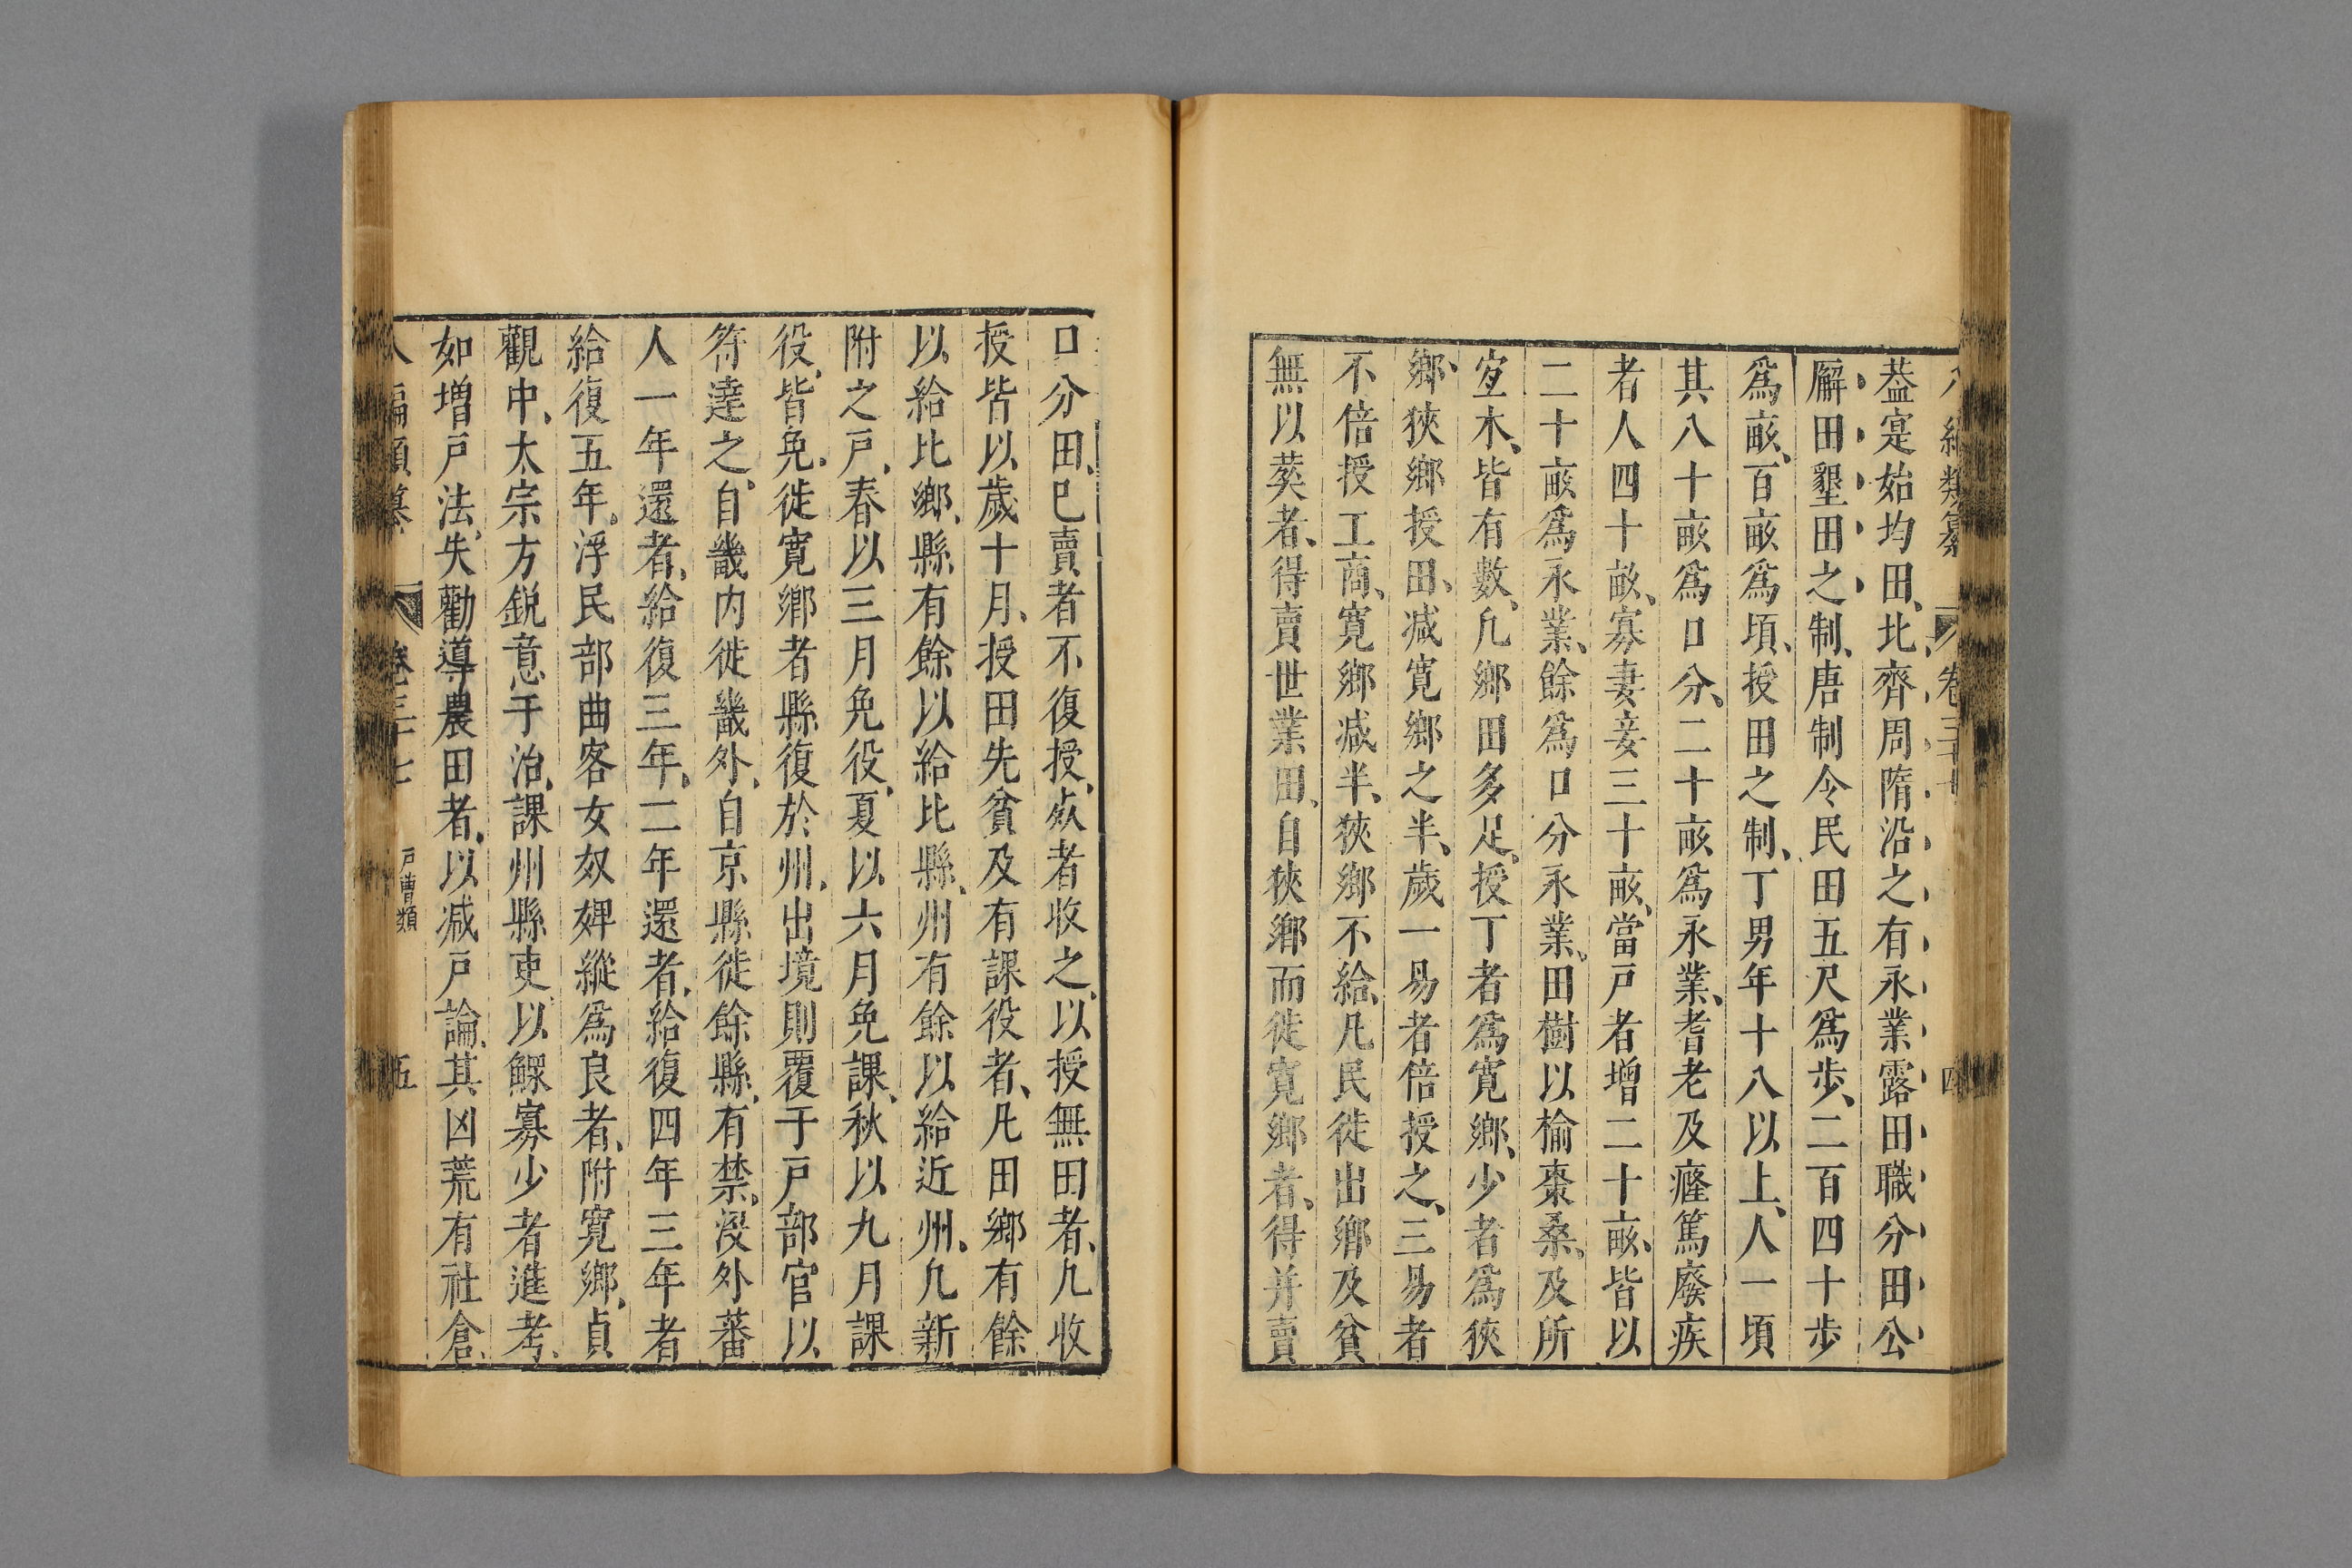 編類纂 卷三十七 四
葢寔始均田、北齊周隋沿之有永業露田職分田公
廨田墾田之制、唐制令民田五尺爲步、二百四十步
爲畝、百畝爲頃、授田之制、丁男年十八以上、人一頃
其八十畝爲口分、二十畝爲永業、耆老及癃篤廢疾
者人四十畝、寡妻妾三十畝、當戶者增二十畝、皆以
二十畝爲永業、餘爲口分永業、田樹以榆棗桑、及所
宐木、皆有數、凡鄉田多足、授丁者爲寬鄉、少者爲狹
鄉、狹鄉授田、减寬鄉之半、歲一易者倍授之、三易者
不倍授工商、寬鄉减半、狹鄉不給、凡民徙出鄉及貧
無以葬者、得賣世業田、自狹鄉而徙寬鄉者、得并賣
口分田、巳賣者不復授、死者收之、以授無田者、凡收
授皆以歲十月、授田先貧及有課役者、凡田鄉有餘
以給比鄉、縣有餘以給比縣、州有餘以給近州、凡新
附之戶、春以三月免役、夏以六月免課、秋以九月課
役、皆免、徙寬鄉者縣復於州、出境則覆于戶部官以
符達之、自畿内徙畿外、自京縣徙餘縣、有禁、沒外蕃
人一年還者、給復三年、二年還者、給復四年三年者
給復五年、浮民部曲客女奴婢縱爲良者、附寬鄉、貞
觀中、太宗方鋭意于治、課州縣吏、以鰥寡少者進考、
如增戶法、失勸導農田者、以减戶論、其凶荒有社倉、
八編類纂 卷三十七 戶曹類 五